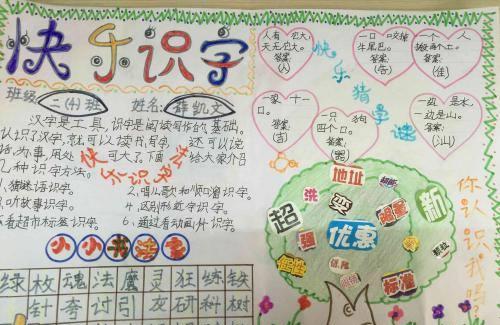 快乐识字
班级：二(4)班 姓名：薛凯文
汉字是工具，识字是阅读写作的基础。
认识了汉字，就可以读书，写字，还可以说
话，办事，用处可大了，下面给大家介绍
几种识字方法。
快乐识字方法
1、猜谜语识字。
2、唱儿歌和顺口溜识字。
3、听故事识字。
4、区别形近字识字。
5、看超市标签识字。
6、通过看动画片识字。
小小书法室
绿枚魂法魔灵狂练铁
针夸讨引友研科树
快乐猜字谜
人有它大，
天无它大。
答案：
(一)
一口咬掉
牛尾巴。
答案：
(告)
一个人
搬两个土。
答案：
(佳)
一家十一
口。
答案：
(吉)
一只狗
四个口。
答案：
(器)
一边是水，
一边是山。
答案：
(汕)
你认识我吗
地址
洗
超
变
新
强
优惠
标准
颗粒